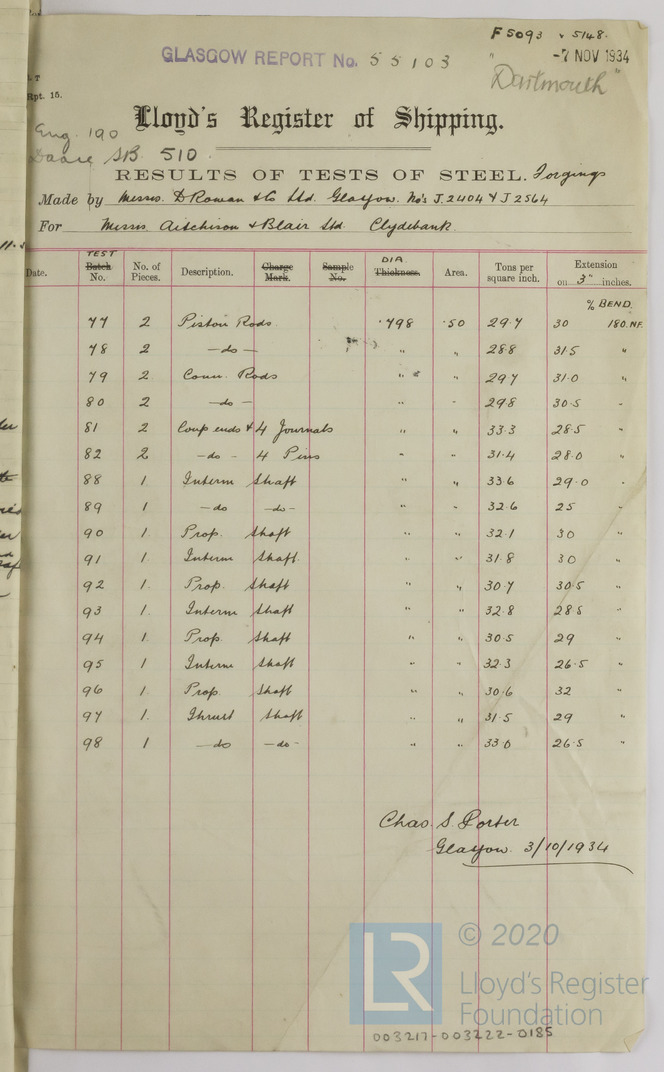 F 5093 & 5148.
GLASGOW REPORT No. 55103
-7 NOV 1934
"Dartmouth"
Rpt. 15.
Lloyd's Register of Shipping.
Eng. 190
S.B. 510.
RESULTS OF TESTS OF STEEL. Forgings
Made by Messrs. D Rowan & Co Ltd. Glasgow. No's J.2404 & J2564
For Messrs. Aitchison & Blair Ltd Clydebank.
Date. TEST Batch No. No. of Pieces. Description. Charge Mark. Sample No. DIA Thickness. Area. Tons per square inch. Extension on 3" inches.
% BEND.
77 2 Piston Rods .798 .50 29.7 30 180. NF.
78 2 —do— " " 28.8 31.5 "
79 2 Conn. Rods " " 29.7 31.0 "
80 2 —do— " " 29.8 30.5 "
81 2 Coup ends & 4 Journals " " 33.3 28.5 "
82 2 —do— 4 Pins " " 31.4 28.0 "
88 1 Interm Shaft " " 33.6 29.0 "
89 1 —do —do— " " 32.6 25 "
90 1. Prop. Shaft " " 32.1 30 "
91 1. Interm Shaft. " " 31.8 30 "
92 1. Prop. Shaft " " 30.7 30.5 "
93 1. Interm Shaft " " 32.8 28.5 "
94 1. Prop. Shaft " " 30.5 29 "
95 1. Interm Shaft " " 32.3 26.5 "
96 1. Prop. Shaft " " 30.6 32 "
97 1. Thrust Shaft " " 31.5 29 "
98 1 —do —do— " " 33.0 26.5 "
Chas. S. Porter
Glasgow. 3/10/1934
LR
© 2020
Lloyd's Register
Foundation
003217-003222-0185